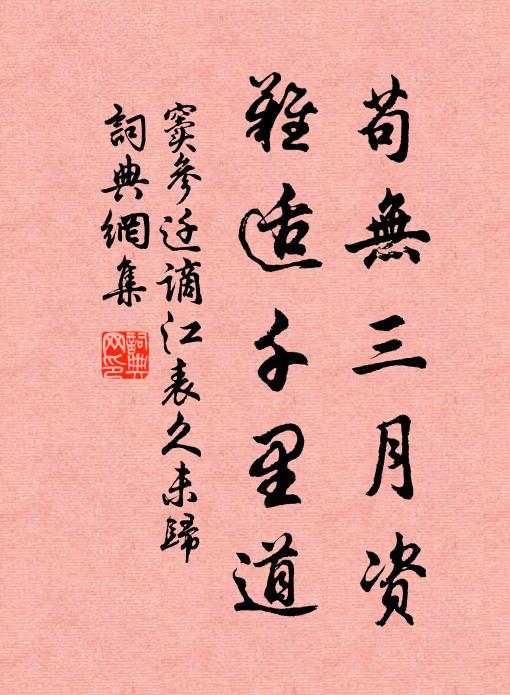 苟無三月资
難适千里道
窦参 迁謫江表久未歸
詞典網集
詞典网印